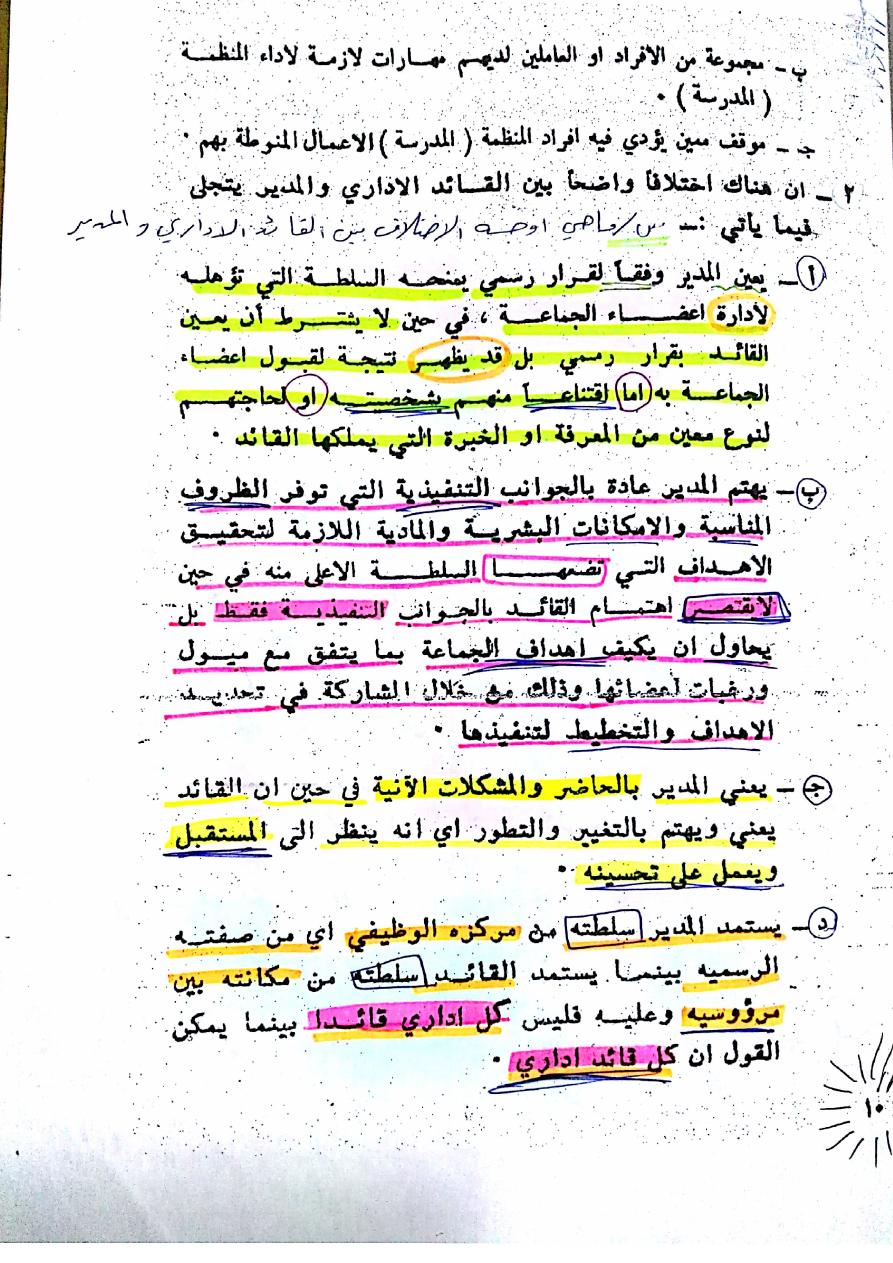 ب - مجموعة من الافراد او العاملين لديهم مهارات لازمة لاداء المنظمة
( المدرسة ) .
جـ - موقف معين يؤدي فيه افراد المنظمة ( المدرسة ) الاعمال المنوطة بهم .
٢ - ان هناك اختلافاً واضحاً بين القائد الاداري والمدير يتجلى
فيما يأتي :- س/ ماهي اوجه الاختلاف بين القائد الاداري و المدير
أ - يعين المدير وفقاً لقرار رسمي يمنحه السلطة التي تؤهله
لادارة اعضاء الجماعة ، في حين لا يشترط أن يعين
القائد بقرار رسمي بل قد يظهر نتيجة لقبول اعضاء
الجماعة به اما اقتناعاً منهم بشخصيته او لحاجتهم
لنوع معين من المعرفة او الخبرة التي يملكها القائد .
ب - يهتم المدير عادة بالجوانب التنفيذية التي توفر الظروف
المناسبة والامكانات البشرية والمادية اللازمة لتحقيق
الاهداف التي تضمها السلطة الاعلى منه في حين
لايقتصر اهتمام القائد بالجوانب التنفيذية فقط بل
يحاول ان يكيف اهداف الجماعة بما يتفق مع ميول
ورغبات اعضائها وذلك من خلال المشاركة في تحديد
الاهداف والتخطيط لتنفيذها .
جـ - يعني المدير بالحاضر والمشكلات الآنية في حين ان القائد
يعني ويهتم بالتغيير والتطور اي انه ينظر الى المستقبل
ويعمل على تحسينه .
د - يستمد المدير سلطته من مركزه الوظيفي اي من صفته
الرسميه بينما يستمد القائد سلطته من مكانته بين
مرؤوسيه وعليه فليس كل اداري قائدا بينما يمكن
القول ان كل قائد اداري .
١٠